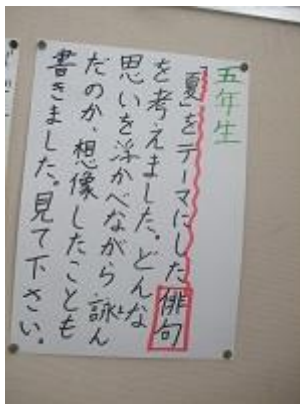 五年生
「夏」をテーマにした俳句
を考えました。どんな
思いを浮かべながら詠ん
だのか、想像したことも
書きました。見て下さい。